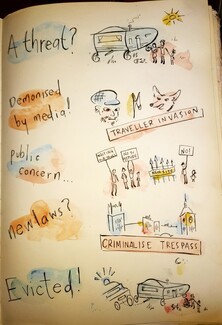 A threat?
Demonised
by media!
TRAVELLER INVASION
Public
concern...
NO!
new laws?
CRIMINALISE TRESPASS
Evicted!